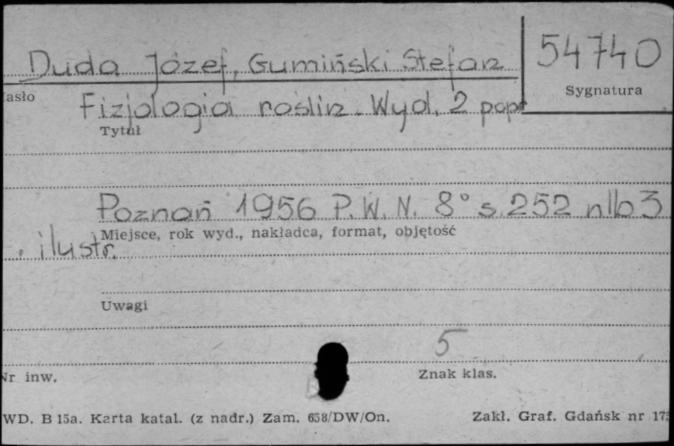 Duda Józef, Gumiński Stefan
54740
Sygnatura
asło
Fizjologia roślin. Wyd. 2 popr
Tytuł
Poznań 1956 P.W.N. 8° s. 252 nlb 3
Miejsce, rok wyd., nakładca, format, objętość
, ilustr.
Uwagi
5
Nr inw.
Znak klas.
WD. B 15a. Karta katal. (z nadr.) Zam. 658/DW/On.
Zakł. Graf. Gdańsk nr 17